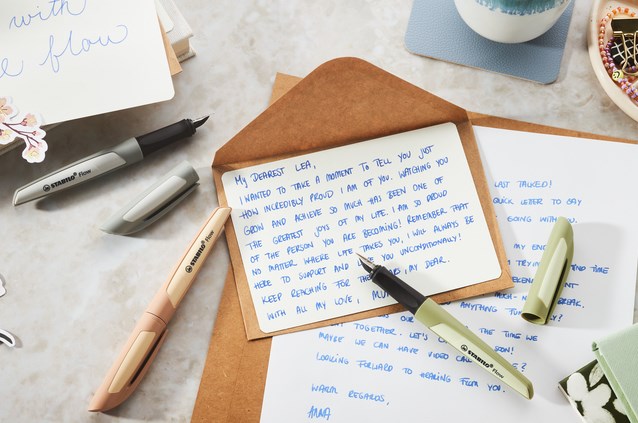 with
flow
STABILO Flow
STABILO Flow
My DEAREST LEA,
I WANTED TO TAKE A MOMENT TO TELL YOU JUST
HOW INCREDIBLY PROUD I AM OF YOU. WATCHING YOU
GROW AND ACHIEVE SO MUCH HAS BEEN ONE OF
THE GREATEST JOYS OF MY LIFE. I AM SO PROUD
OF THE PERSON YOU ARE BECOMING! REMEMBER THAT
NO MATTER WHERE LIFE TAKES YOU, I WILL ALWAYS BE
HERE TO SUPPORT AND YOU UNCONDITIONALLY!
KEEP REACHING FOR THE MY DEAR.
WITH ALL MY LOVE,
LAST TALKED!
QUICK LETTER TO SAY
GOING WITH YOU.
MY
TIME
BREAK.
ANYTHING
OUR THE TIME WE
TOGETHER. LET'S SOON!
MAYBE WE CAN HAVE VIDEO
LOOKING FORWARD TO HEARING FROM YOU.
WARM REGARDS,
ANNA
STABILO Flow